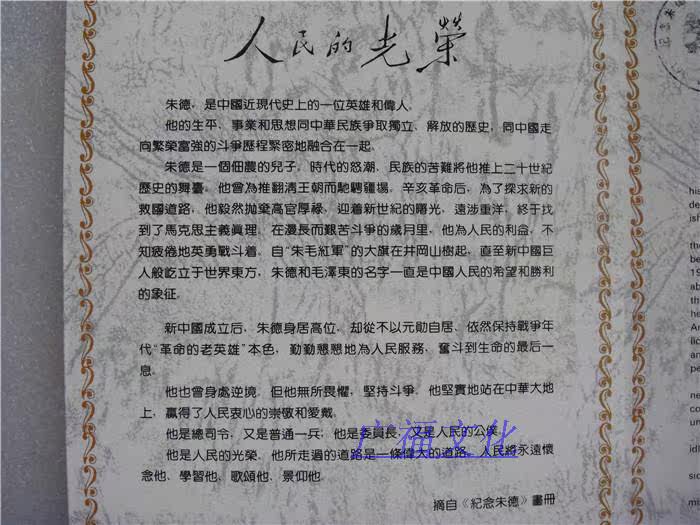 人民的光榮
朱德，是中國近現代史上的一位英雄和偉人。
他的生平、事業和思想同中華民族爭取獨立、解放的歷史，同中國走
向繁榮富強的斗爭歷程緊密地融合在一起。
朱德是一個佃農的兒子。時代的怒潮，民族的苦難將他推上二十世紀
歷史的舞臺。他曾為推翻清王朝而馳騁疆場。辛亥革命后，為了探求新的
救國道路，他毅然拋棄高官厚祿，迎着新世紀的曙光，遠涉重洋，終于找到
了馬克思主義真理。在漫長而艱苦斗爭的歲月里，他為人民的利益，不
知疲倦地英勇戰斗着。自“朱毛紅軍”的大旗在井岡山樹起，直至新中國巨
人般屹立于世界東方，朱德和毛澤東的名字一直是中國人民的希望和勝利
的象征。
新中國成立后，朱德身居高位，却從不以元勛自居，依然保持戰爭年
代“革命的老英雄”本色，勤勤懇懇地為人民服務，奮斗到生命的最后一
息。
他也曾身處逆境，但他無所畏懼，堅持斗爭。他堅實地站在中華大地
上，贏得了人民衷心的崇敬和愛戴。
他是總司令，又是普通一兵；他是委員長，又是人民的公僕。
他是人民的光榮。他所走過的道路是一條偉大的道路。人民將永遠懷
念他、學習他、歌頌他、景仰他。
摘自《紀念朱德》畫冊
广福文化